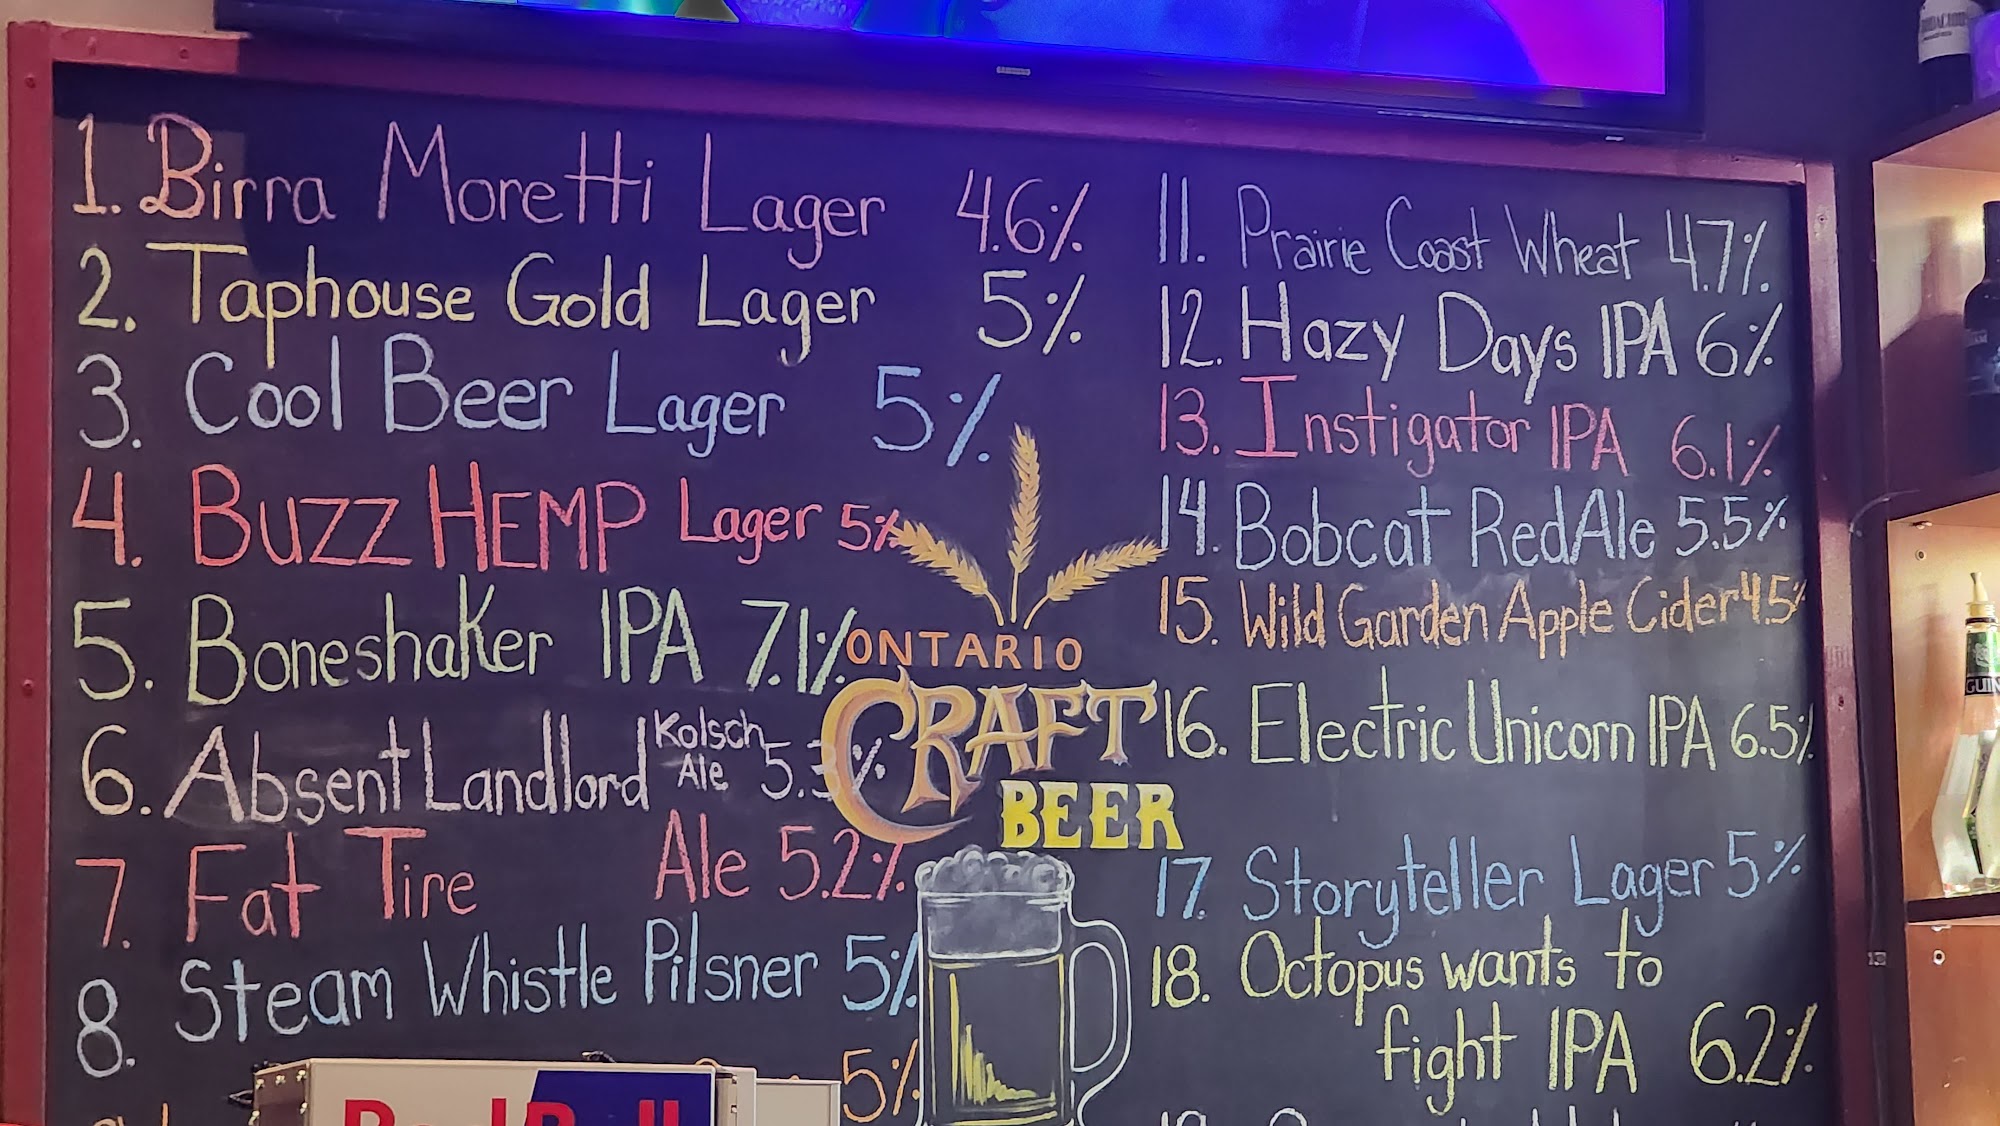 1. Birra Moretti Lager 4.6%
2. Taphouse Gold Lager 5%
3. Cool Beer Lager 5%
4. BUZZ HEMP Lager 5%
5. Boneshaker IPA 7.1%
6. Absent Landlord Kolsch Ale 5.3%
7. Fat Tire Ale 5.2%
8. Steam Whistle Pilsner 5%
5%
ONTARIO
CRAFT
BEER
11. Prairie Coast Wheat 4.7%
12. Hazy Days IPA 6%
13. Instigator IPA 6.1%
14. Bobcat Red Ale 5.5%
15. Wild Garden Apple Cider 4.5%
16. Electric Unicorn IPA 6.5%
17. Storyteller Lager 5%
18. Octopus wants to
fight IPA 6.2%
Red Bull